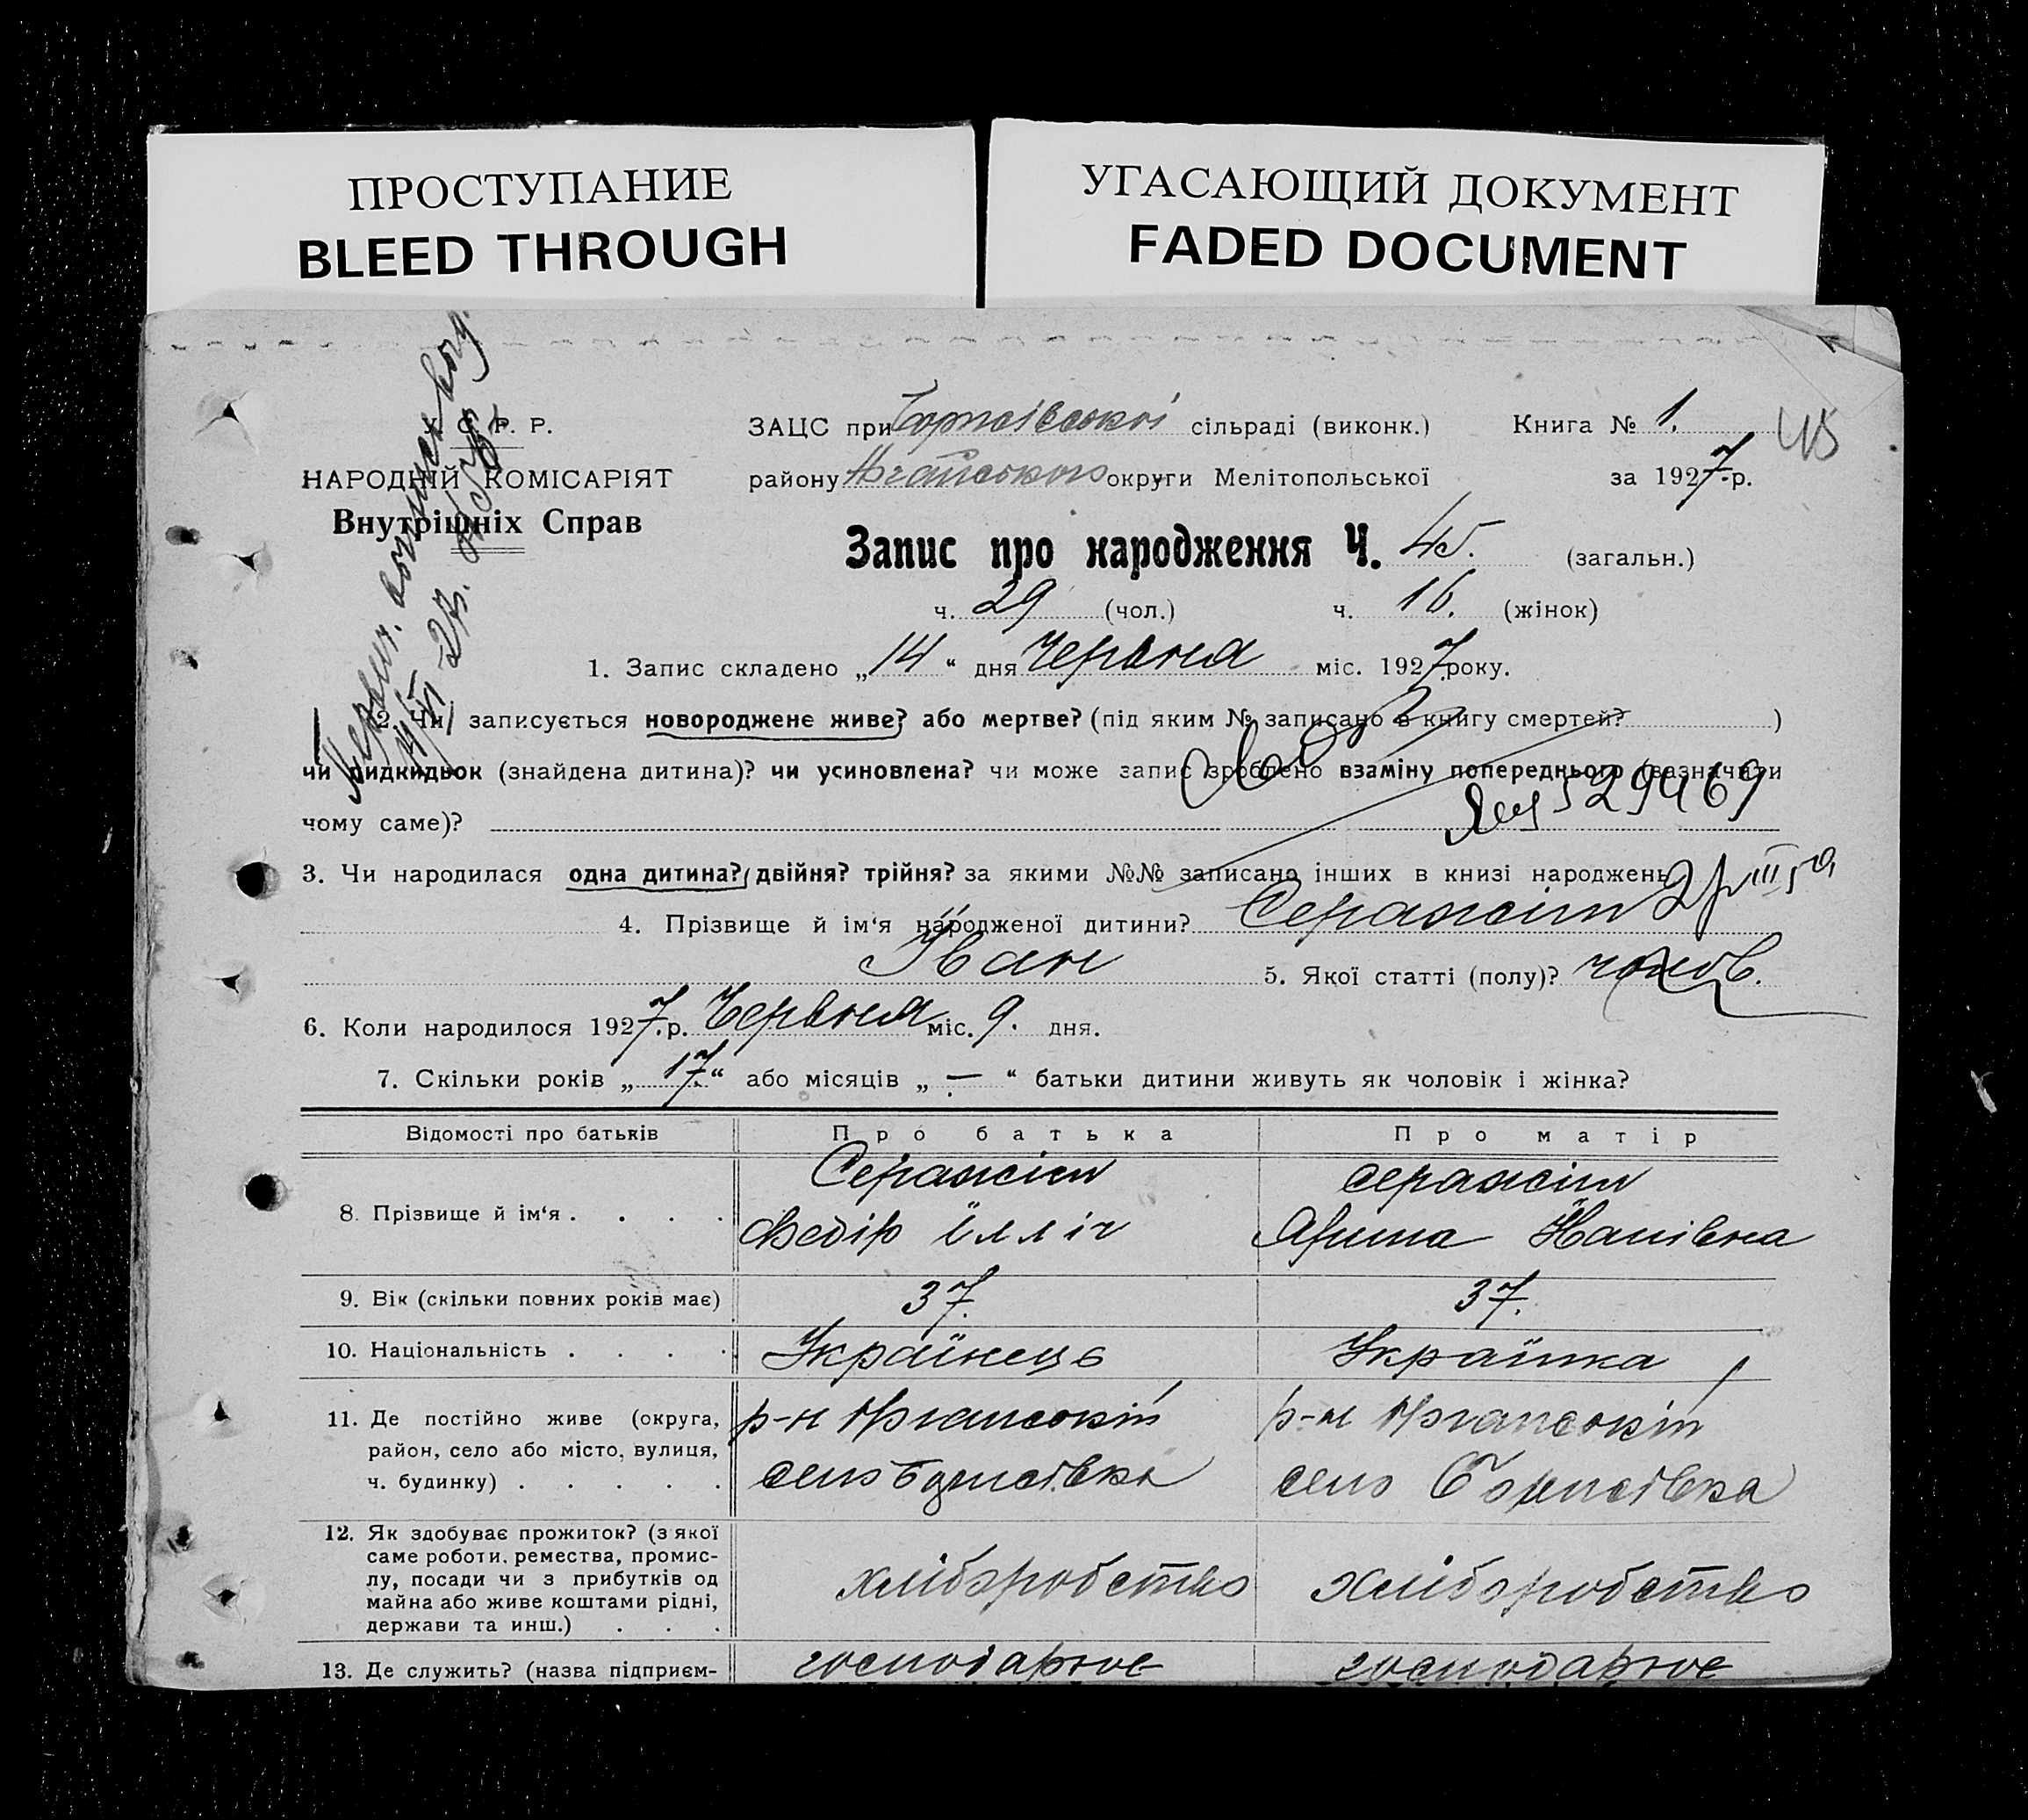 ПРОСТУПАНИЕ
BLEED THROUGH
УГАСАЮЩИЙ ДОКУМЕНТ
FADED DOCUMENT
У. С. Р. Р.
НАРОДНІЙ КОМІСАРІЯТ
Внутрішніх Справ
ЗАЦС при сільраді (виконк.) Книга № 1.
45
району округи Мелітопольської за 1927 р.
Запис про народження Ч. 45. (загальн.)
ч. 29 (чол.) ч. 16. (жінок)
1. Запис складено „14“ дня Червня міс. 1927 року.
2. Чи записується новороджене живе? або мертве? (під яким № записано в книгу смертей? )
чи підкидьок (знайдена дитина)? чи усиновлена? чи може запис зроблено взаміну попереднього (зазначити
529469
чому саме)?
3. Чи народилася одна дитина? двійня? трійня? за якими №№ записано інших в книзі народжень
4. Прізвище й ім‘я народженої дитини? Серажім
Іван 5. Якої статті (полу)? чолов.
6. Коли народилося 1927.р. Червня міс. 9. дня.
7. Скільки років „17.“ або місяців „—“ батьки дитини живуть як чоловік і жінка?
Відомості про батьків Про батька Про матір
8. Прізвище й ім‘я . . . . Серажім Серажім
Федір Ілліч
9. Вік (скільки повних років має) 37. 37.
10. Національність . . . . Українець Українка
11. Де постійно живе (округа, р-н р-н
район, село або місто, вулиця,
ч. будинку) . . . . . село село
12. Як здобуває прожиток? (з якої
саме роботи, ремества, промис-
лу, посади чи з прибутків од
майна або живе коштами рідні, хліборобство хліборобство
держави та инш.) . . .
13. Де служить? (назва підприєм- господарює господарює